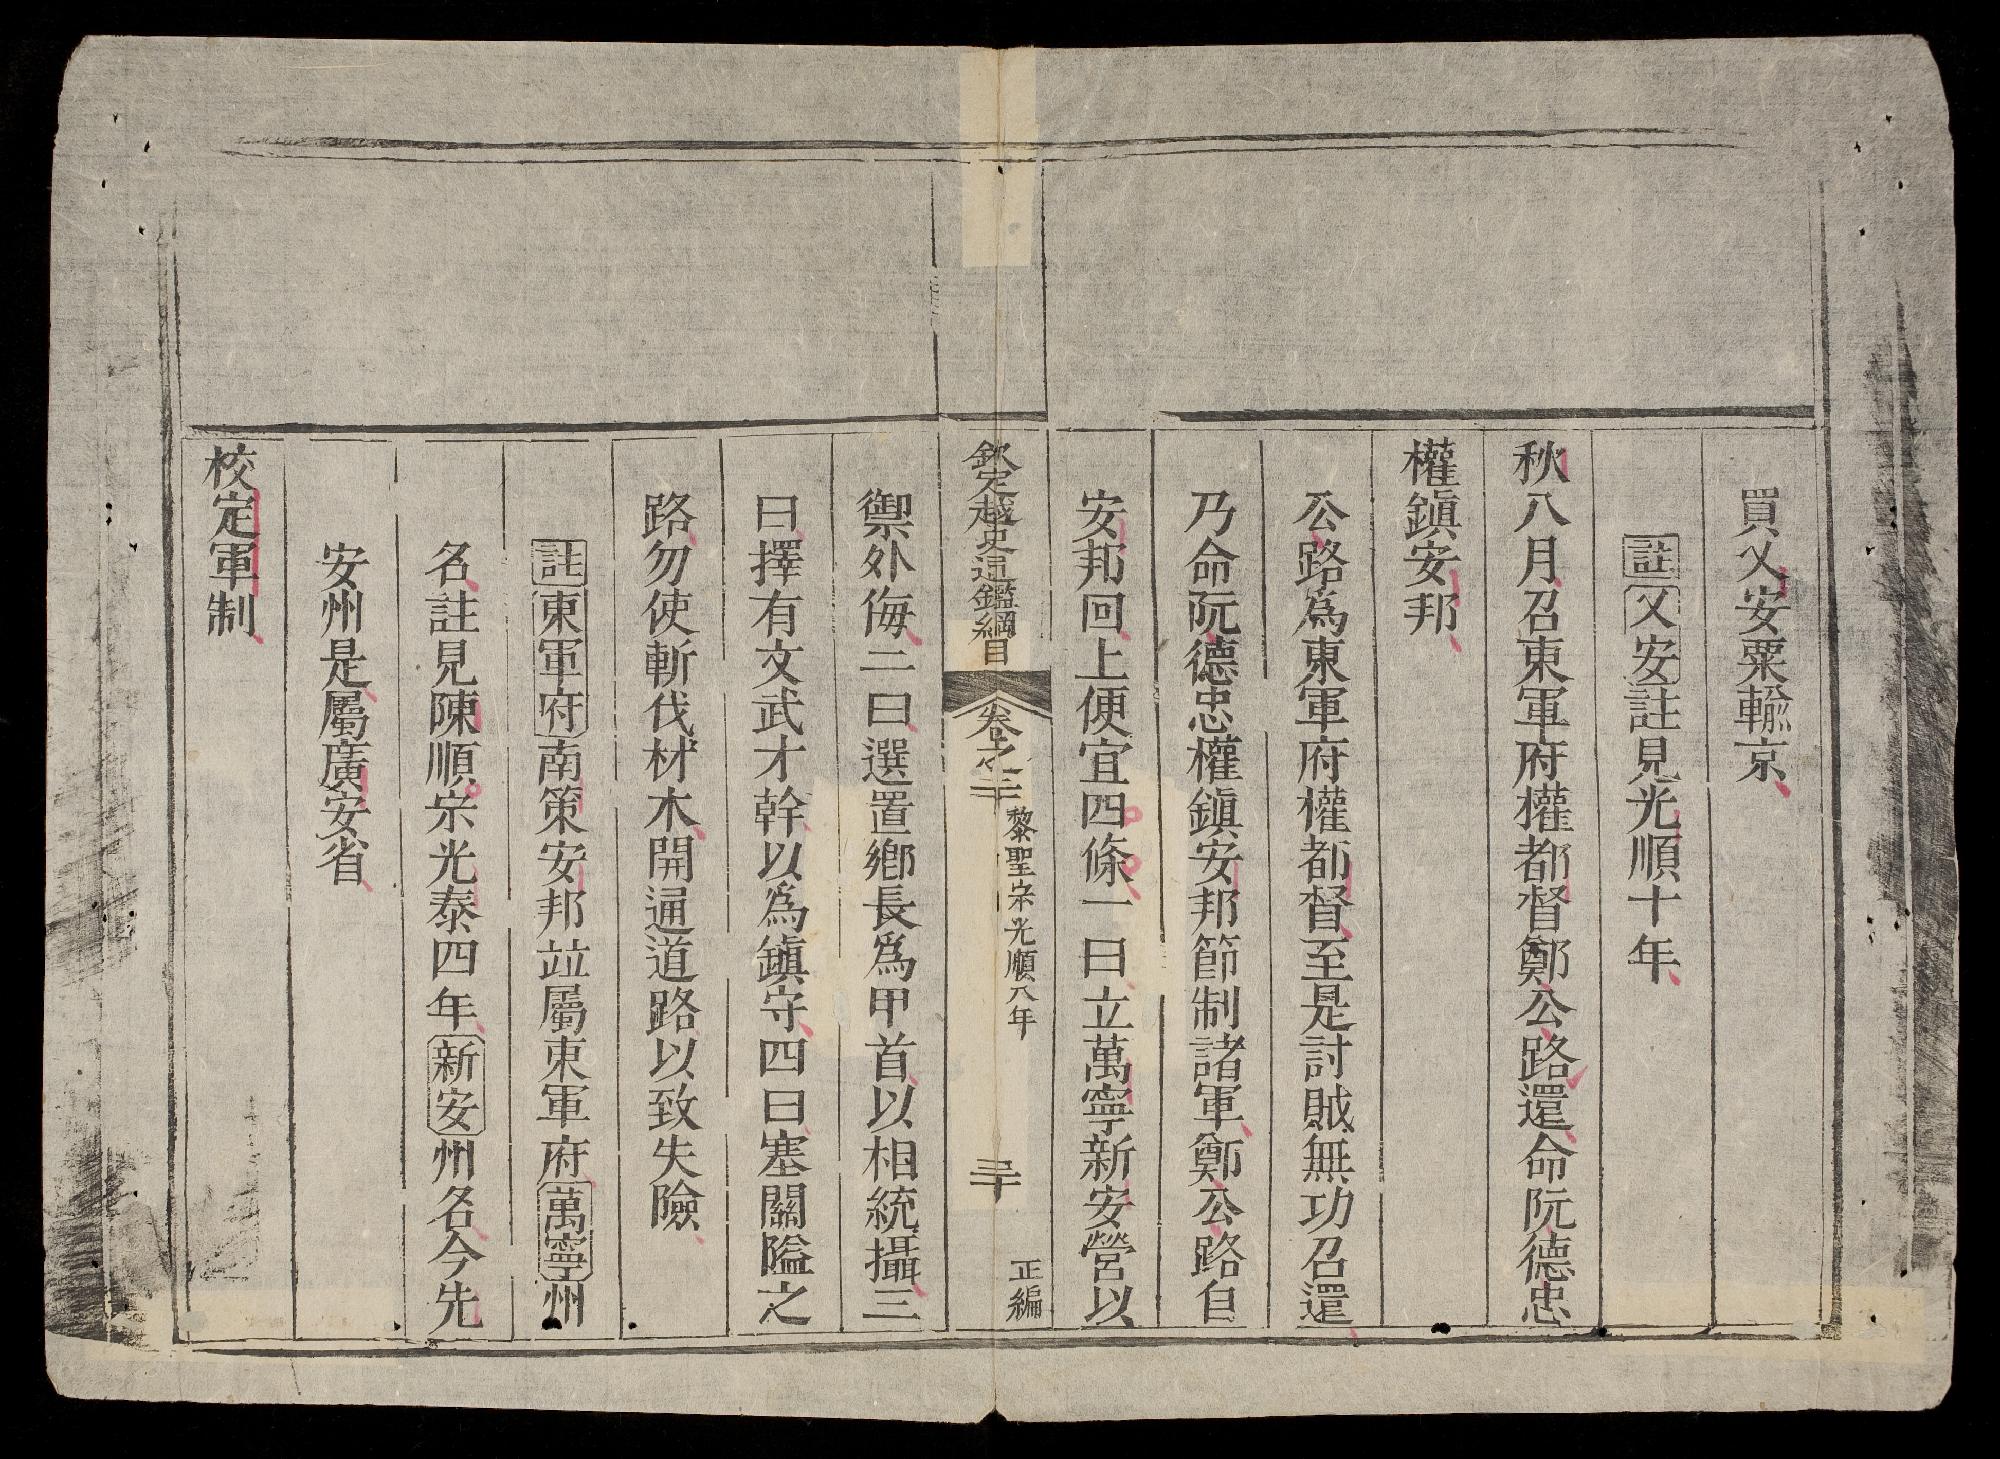 買乂安粟輸京
註乂安註見光順十年
秋八月召東軍府權都督鄭公路還命阮德忠
權鎮安邦
公路爲東軍府權都督至是討賊無功召還
乃命阮德忠權鎮安邦節制諸軍鄭公路自
安邦回上便宜四條一曰立萬寧新安營以
欽定越史通鑑綱目
卷之二十
黎聖宗光順八年
三十
正編
禦外侮二曰選置鄕長爲甲首以相統攝三
曰擇有文武才幹以爲鎮守四曰塞關隘之
路勿使斬伐材木開通道路以致失險
註東軍府南策安邦竝屬東軍府萬寧州
名註見陳順宗光泰四年新安州名今先
安州是屬廣安省
校定軍制